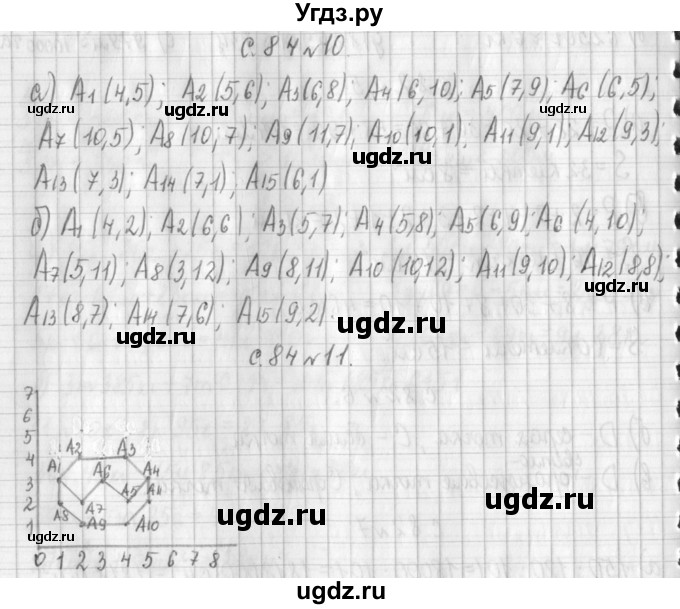 Угдз.ру
с. 84 №10
а) A1(4,5); A2(5,6); A3(6,8); A4(6,10); A5(7,9); A6(6,5);
A7(10,5); A8(10;7); A9(11,7); A10(10,1); A11(9,1); A12(9,3);
A13(7,3); A14(7,1); A15(6,1)
б) A1(4,2); A2(6,6); A3(5,7); A4(5,8); A5(6,9); A6(4,10);
A7(5,11); A8(3,12); A9(8,11); A10(10,12); A11(9,10); A12(8,8);
A13(8,7); A14(7,6); A15(9,2).
с. 84 №11.
7
6
5
4
3
2
1
A2 A3
A1 A6 A4
A5 A11
A8 A7
A9 A10
0 1 2 3 4 5 6 7 8
ugdz.ru
ugdz.ru
ugdz.ru
ugdz.ru
ugdz.ru
ugdz.ru
ugdz.ru
ugdz.ru
ugdz.ru
ugdz.ru
ugdz.ru